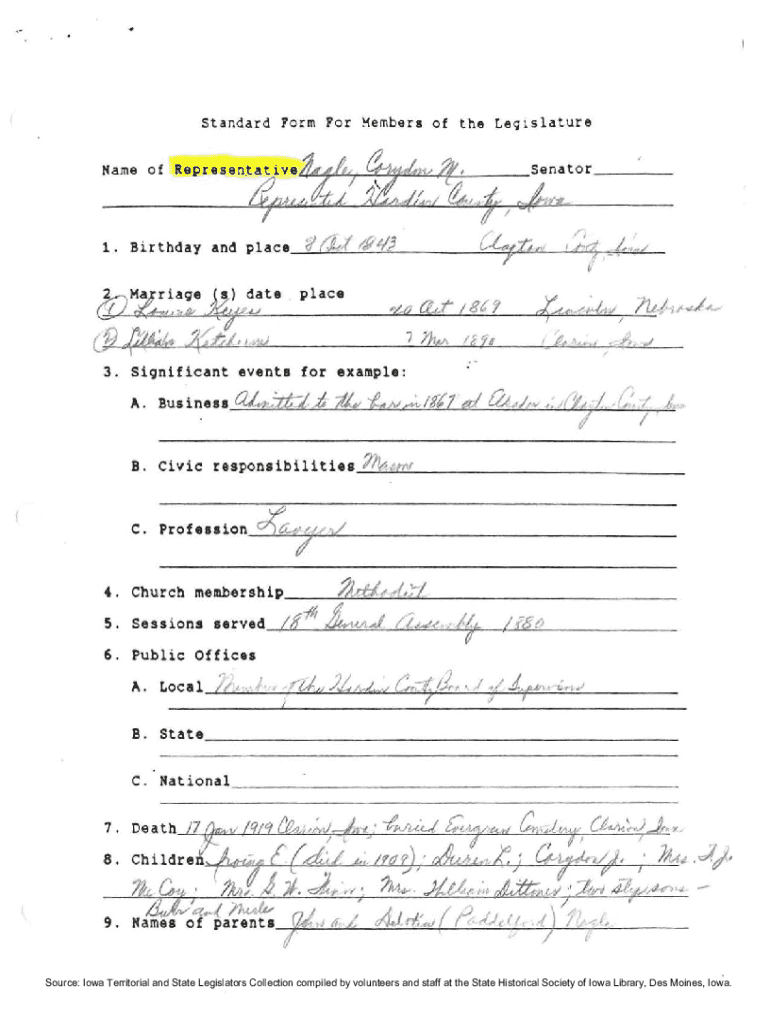 Standard Form For Members of the Legislature
Name of Representative Nagle, Corydon M. Senator
Represented Hardin County, Iowa
1. Birthday and place 8 Oct 1843 Clayton Conty, Iowa
2. Marriage (s) date place
(1) Louise Keyes 20 Oct 1869 Lincoln, Nebraska
(2) Lillian Ketchum 7 Mar 1890 Clarion, Iowa
3. Significant events for example:
A. Business Admitted to the bar in 1867 at in Clayton County, Iowa
B. Civic responsibilities Mason
C. Profession Lawyer
4. Church membership Methodist
5. Sessions served 18th General Assembly 1880
6. Public Offices
A. Local Member of the Hardin County Board of Supervisors
B. State
C. National
7. Death 17 Jan 1919 Clarion, Iowa; buried Evergreen Cemetery, Clarion, Iowa
8. Children Irving E. (died in 1909); L.; Corydon J.; Mrs. F.J.
McCoy; Mrs. G. W. ; Mrs. William Dittmer; two stepsons -
and
9. Names of parents John and (Paddelford) Nagle
Source: Iowa Territorial and State Legislators Collection compiled by volunteers and staff at the State Historical Society of Iowa Library, Des Moines, Iowa.